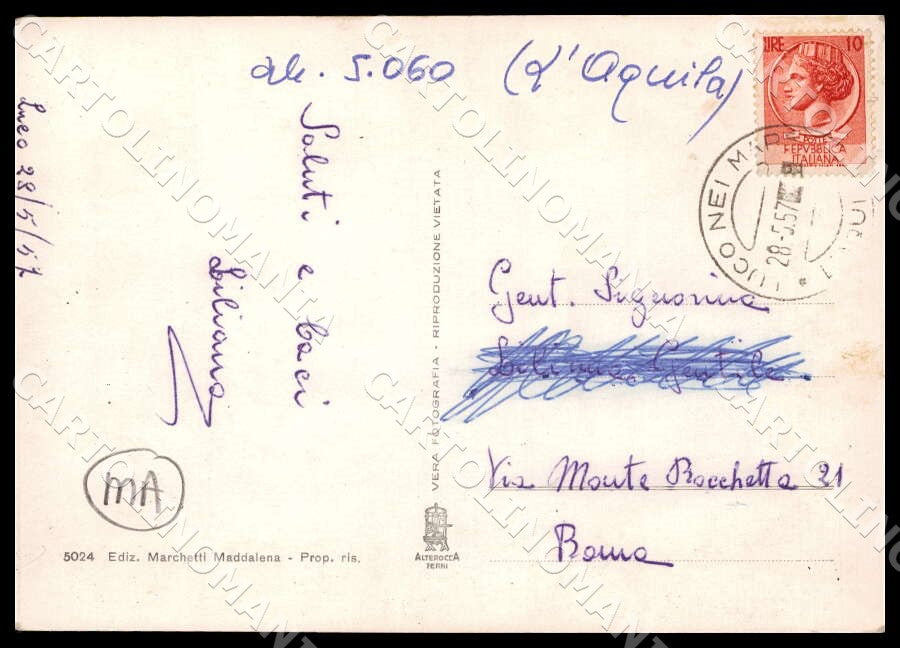 ab. 5.060 (L'Aquila)
LIRE 10
POSTE
REPVBBLICA
ITALIANA
LUCO NEI MAR
28-5.57
Luco 28/5/57
Saluti e baci
Liliana
Gent. Signorina
Gentile
Via Monte Rocchetta 21
Roma
MA
VERA FOTOGRAFIA - RIPRODUZIONE VIETATA
ALTEROCCA
TERNI
5024 Ediz. Marchetti Maddalena - Prop. ris.
CARTOLINOMANIA